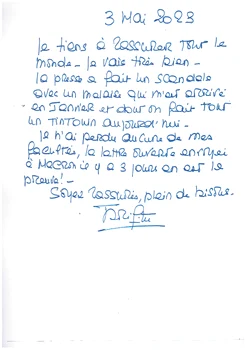 3 Mai 2023
Je tiens à rassurer tout le
monde - Je vais très bien -
La presse a fait un scandale
avec un malaise qui m'est arrivé
en Janvier et dont on fait tout
un tintouin aujourd'hui -
Je n'ai perdu aucune de mes
facultés, la lettre ouverte envoyée
à Macron il y a 3 jours en est la
preuve! -
Soyez rassurés, plein de bisous -